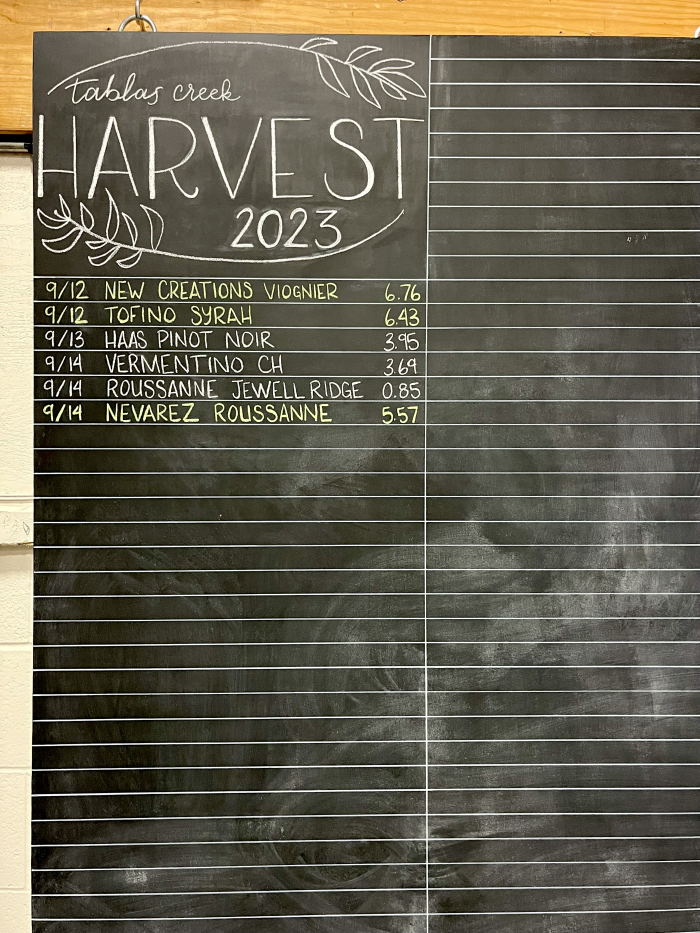 tablas creek
HARVEST
2023
9/12 NEW CREATIONS VIOGNIER 6.76
9/12 TOFINO SYRAH 6.43
9/13 HAAS PINOT NOIR 3.95
9/14 VERMENTINO CH 3.69
9/14 ROUSSANNE JEWELL RIDGE 0.85
9/14 NEVAREZ ROUSSANNE 5.57